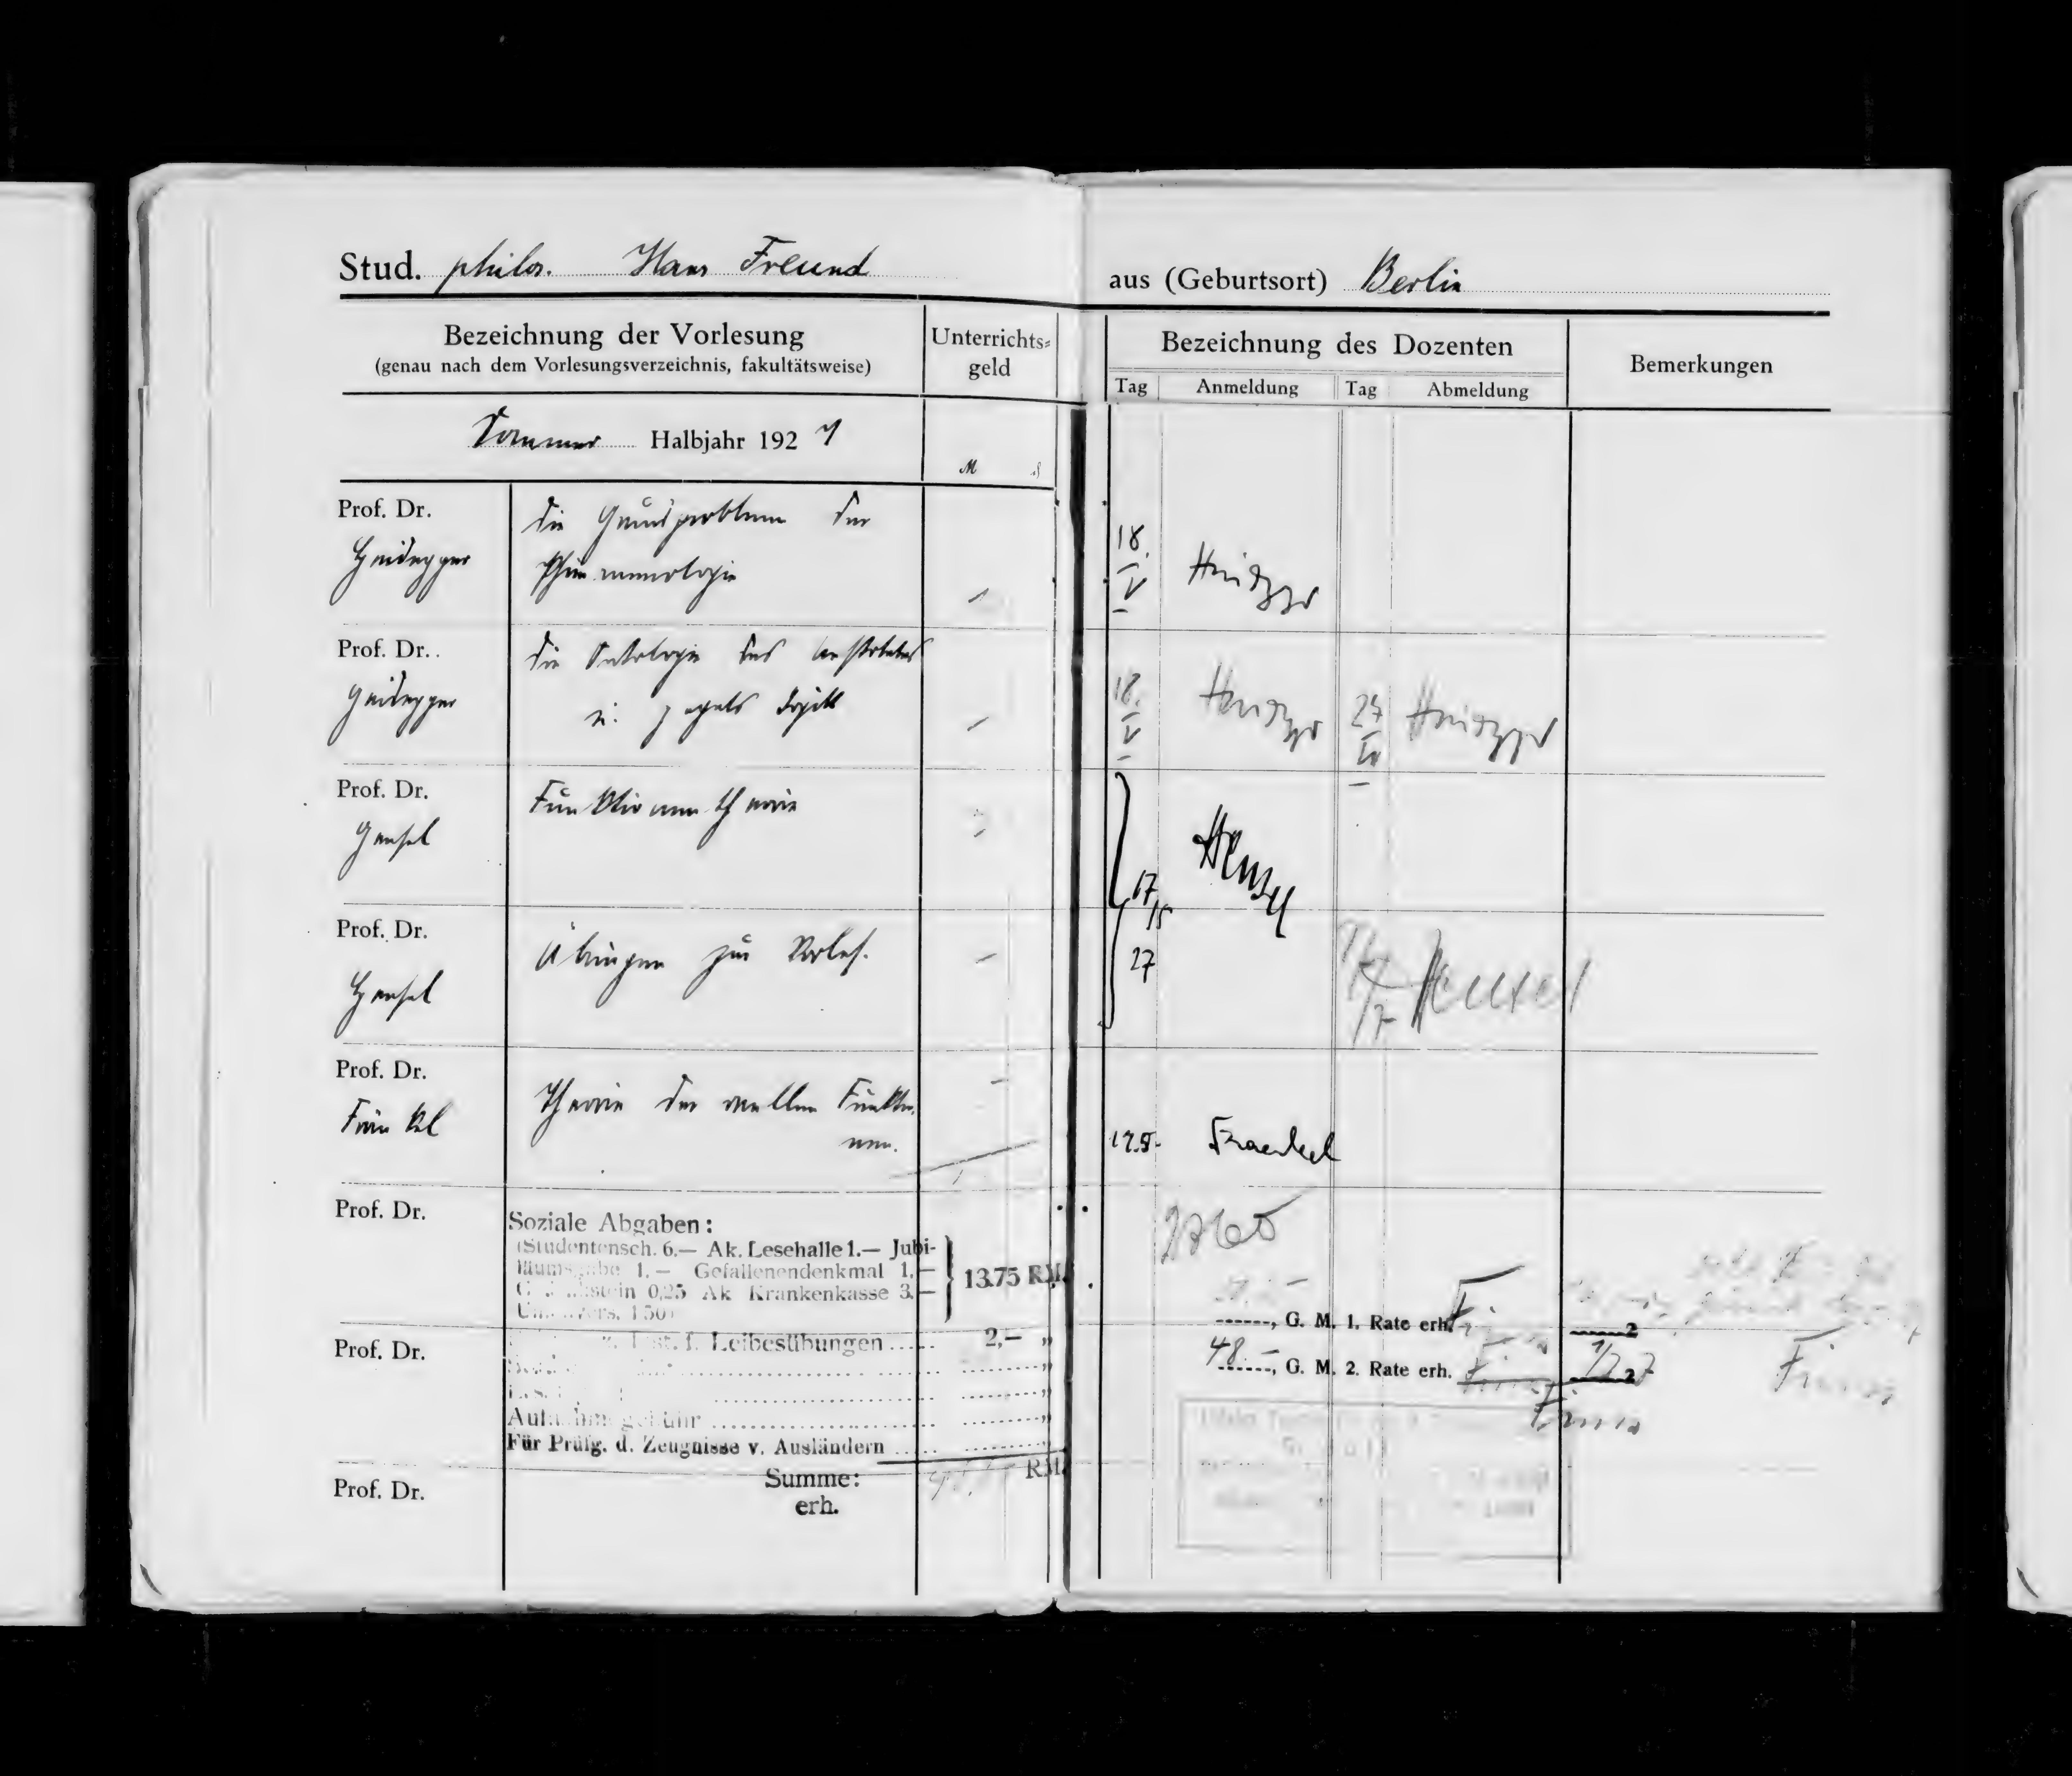 Stud. philos. Hans Freund
aus (Geburtsort) Berlin
Bezeichnung der Vorlesung
(genau nach dem Vorlesungsverzeichnis, fakultätsweise)
Unterrichts=
geld
Bezeichnung des Dozenten
Tag Anmeldung Tag Abmeldung
Bemerkungen
Sommer Halbjahr 1927
M ₰
Prof. Dr.
Heidegger
Die Grundprobleme der
Phänomenologie
18.
V
Heidegger
Prof. Dr.
Heidegger
Die Ontologie des Aristoteles
u. Hegels Logik
18.
V
Heidegger
Heidegger
Prof. Dr.
Hensel
Funktionentheorie
17/5
27
Hensel
Prof. Dr.
Hensel
Übungen zur Vorles.
Hensel
Prof. Dr.
Fränkel
Theorie der reellen Funktio-
nen.
17.5.
Fraenkel
Prof. Dr.
Soziale Abgaben:
(Studentensch. 6.— Ak. Lesehalle 1.— Jubi-
läumsgabe 1.— Gefallenendenkmal 1.—
0,25 Ak Krankenkasse 3.—
1.50)
13.75 RM.
Prof. Dr.
f. Leibesübungen ..... 2,— „
Aufnahmegebühr
Für Prüfg. d. Zeugnisse v. Ausländern
Summe: RM.
erh.
Prof. Dr.
G. M. 1. Rate erh.
48.— , G. M. 2. Rate erh.